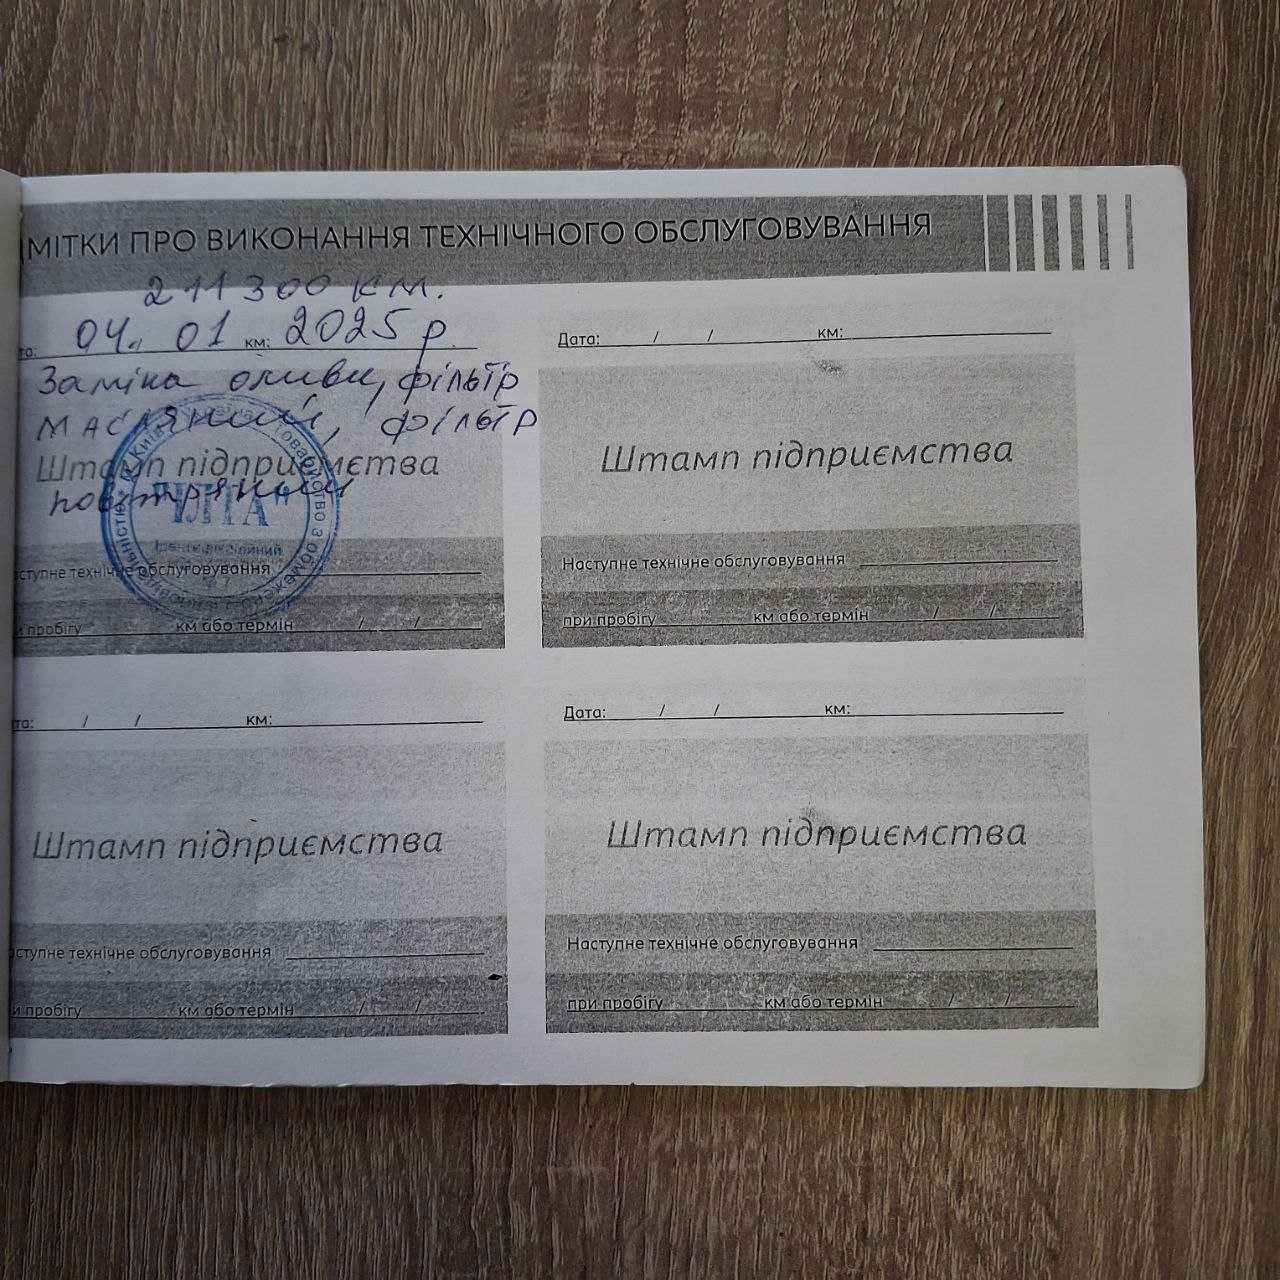 МІТКИ ПРО ВИКОНАННЯ ТЕХНІЧНОГО ОБСЛУГОВУВАННЯ
211300 км.
та: 04. 01 км: 2025 р.
Заміна оливи, фільтр
масляний, фільтр
Штамп підприємства
повітряний
"УЛТА"
Ідентифікаційний
Київ
Товариство з обмеженою
аступне технічне обслуговування
и пробігу км або термін / /
Дата: / / км:
Штамп підприємства
Наступне технічне обслуговування
при пробігу км або термін / /
та: / / км:
Штамп підприємства
аступне технічне обслуговування
и пробігу км або термін / /
Дата: / / км:
Штамп підприємства
Наступне технічне обслуговування
при пробігу км або термін / /